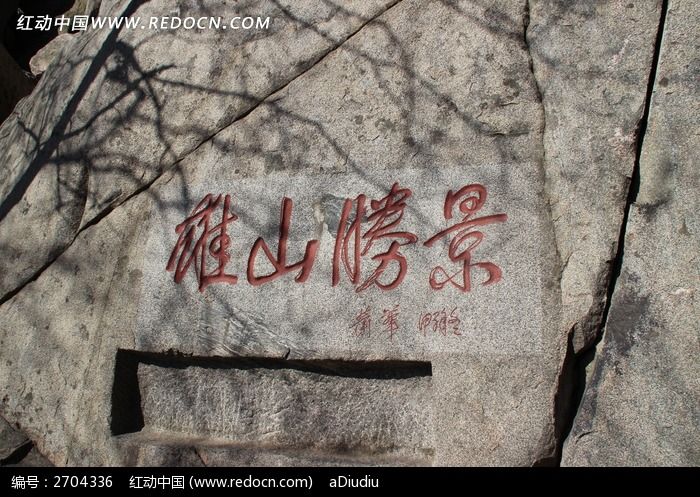 红动中国 WWW.REDOCN.COM
雄山勝景
编号：2704336 红动中国 (www.redocn.com) aDiudiu